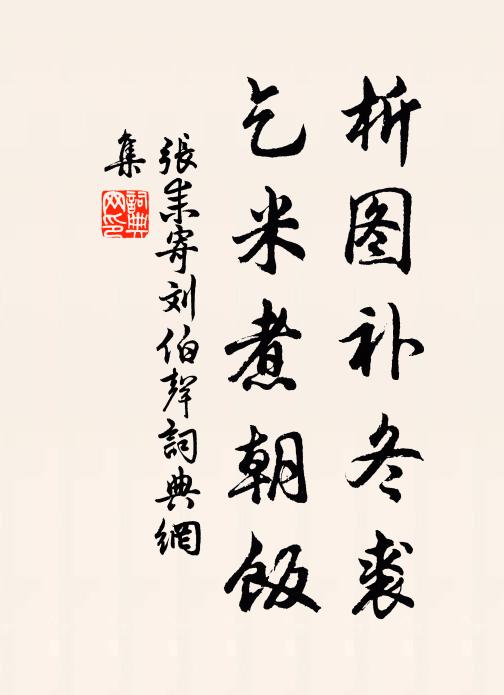 析图补冬裘
乞米煮朝饭
張耒寄刘伯聲詞典網
集
詞典
网印